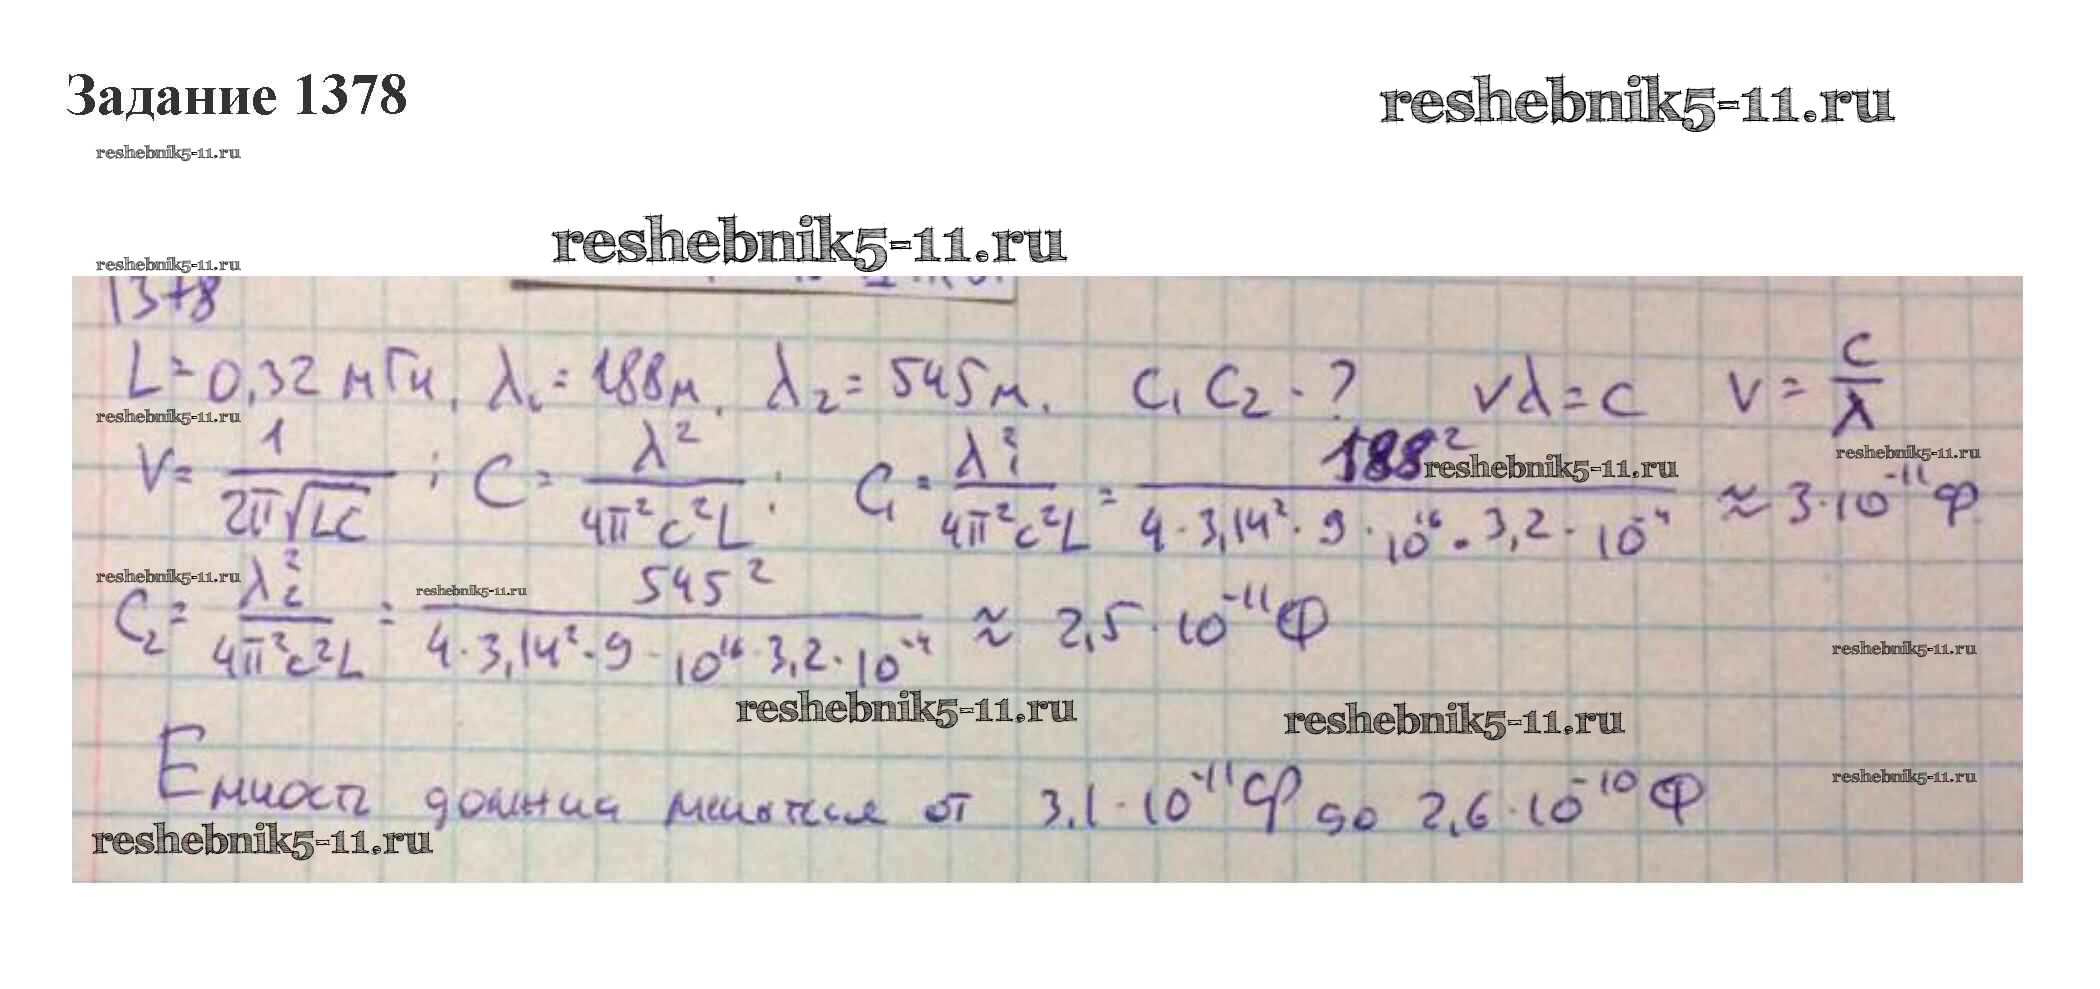 Задание 1378
reshebnik5-11.ru
reshebnik5-11.ru
reshebnik5-11.ru
reshebnik5-11.ru
1378
L = 0,32 мГн, λ₁ = 188м, λ₂ = 545м. C₁ C₂ - ? νλ = c ν = c/λ
reshebnik5-11.ru
ν = 1/(2π√LC) ; C = λ²/(4π²c²L) ; C₁ = λ₁²/(4π²c²L) = 188²/(4·3,14²·9·10¹⁶·3,2·10⁻⁴) ≈ 3·10⁻¹¹ Ф
reshebnik5-11.ru
reshebnik5-11.ru
reshebnik5-11.ru
reshebnik5-11.ru
C₂ = λ₂²/(4π²c²L) = 545²/(4·3,14²·9·10¹⁶·3,2·10⁻⁴) ≈ 2,5·10⁻¹¹ Ф
reshebnik5-11.ru
reshebnik5-11.ru
reshebnik5-11.ru
Емкость должна меняться от 3,1·10⁻¹¹ Ф до 2,6·10⁻¹⁰ Ф
reshebnik5-11.ru
reshebnik5-11.ru